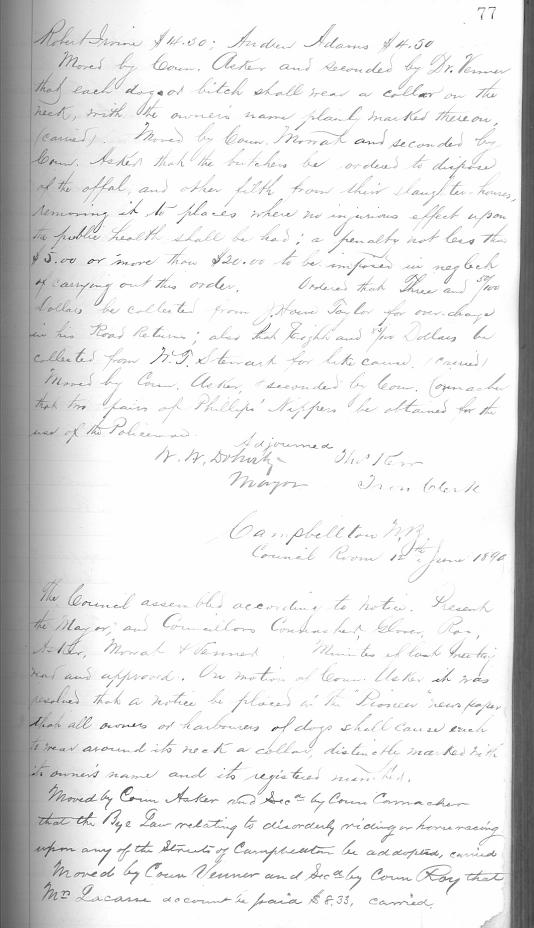 77
Robert Irvine $4.50; Andrew Adams $4.50
Moved by Coun. Asker and seconded by Dr. Venner
that each dog or bitch shall wear a collar on the
neck, with the owner's name plainly marked thereon,
(carried). Moved by Coun. Mowat and seconded by
Coun. Asker that the butchers be ordered to dispose
of the offal, and other filth from their slaughter-houses,
removing it to places where no injurious effect upon
the public health shall be had; a penalty not less than
$5.00 or more than $20.00 to be imposed in neglect
of carrying out this order. Ordered that Three and 50/100
Dollars be collected from Taylor for over-charge
in his Road Returns; also that Eight and Dollars be
collected from W. T. Stewart for like cause. (carried)
Moved by Coun. Asker, & seconded by Coun. Cormacher
that two pairs of Phillips' Nippers be obtained for the
use of the Policeman.
Adjourned
W. W. Doherty Thos Kerr
Mayor Town Clerk
Campbellton N.B.
Council Room 12th June 1890
The Council assembled according to notice. Present
the Mayor; and Councillors Cormacher, Glover, Roy,
Asker, Mowat & Venner. Minutes of last meeting
read and approved. On motion of Coun. Asker it was
resolved that a notice be placed in the "Pioneer" newspaper
that all owners or harbourers of dogs shall cause each
to wear around its neck a collar, distinctly marked with
its owner's name and its registered number.
Moved by Coun Asker and Secd by Coun Cormacher
that the Bye Law relating to disorderly riding or horse racing
upon any of the Streets of Campbellton be addopted, carried
Moved by Coun Venner and Secd by Coun Roy that
Mr Lacasse account be paid $8.33, carried.